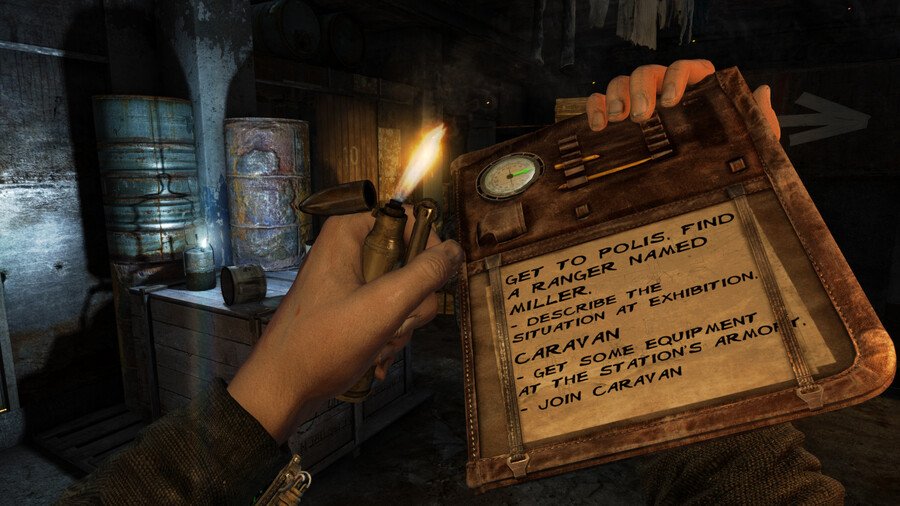 GET TO POLIS. FIND
A RANGER NAMED
MILLER.
- DESCRIBE THE
SITUATION AT EXHIBITION.
CARAVAN
- GET SOME EQUIPMENT
AT THE STATION'S ARMORY.
- JOIN CARAVAN